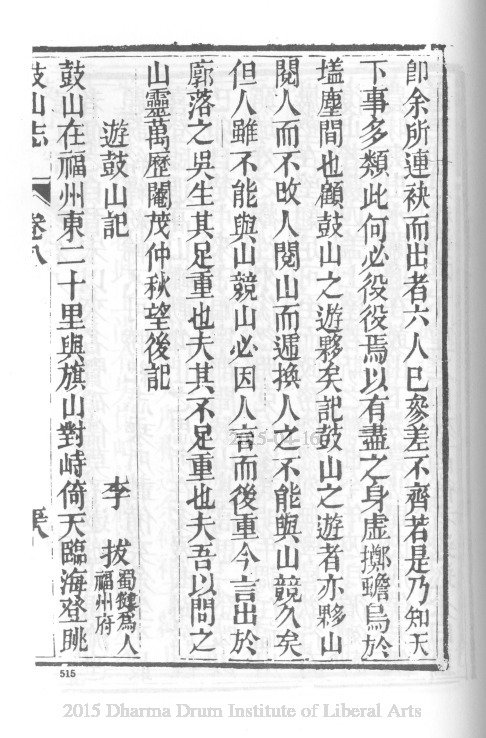 卽余所連袂而出者六人已參差不齊若是乃知天
下事多類此何必役役焉以有盡之身虛擲蟾烏於
壒塵間也顧鼓山之遊夥矣記鼓山之遊者亦夥山
閱人而不改人閱山而遞換人之不能與山競久矣
但人雖不能與山競山必因人言而後重今言出於
廓落之吳生其足重也夫其不足重也夫吾以問之
山靈萬歷閹茂仲秋望後記
遊鼓山記 李 拔 蜀犍爲人
福州府
鼓山在福州東二十里與旗山對峙倚天臨海登眺
鼓山志 卷八
515
2015-04-16
2015 Dharma Drum Institute of Liberal Arts